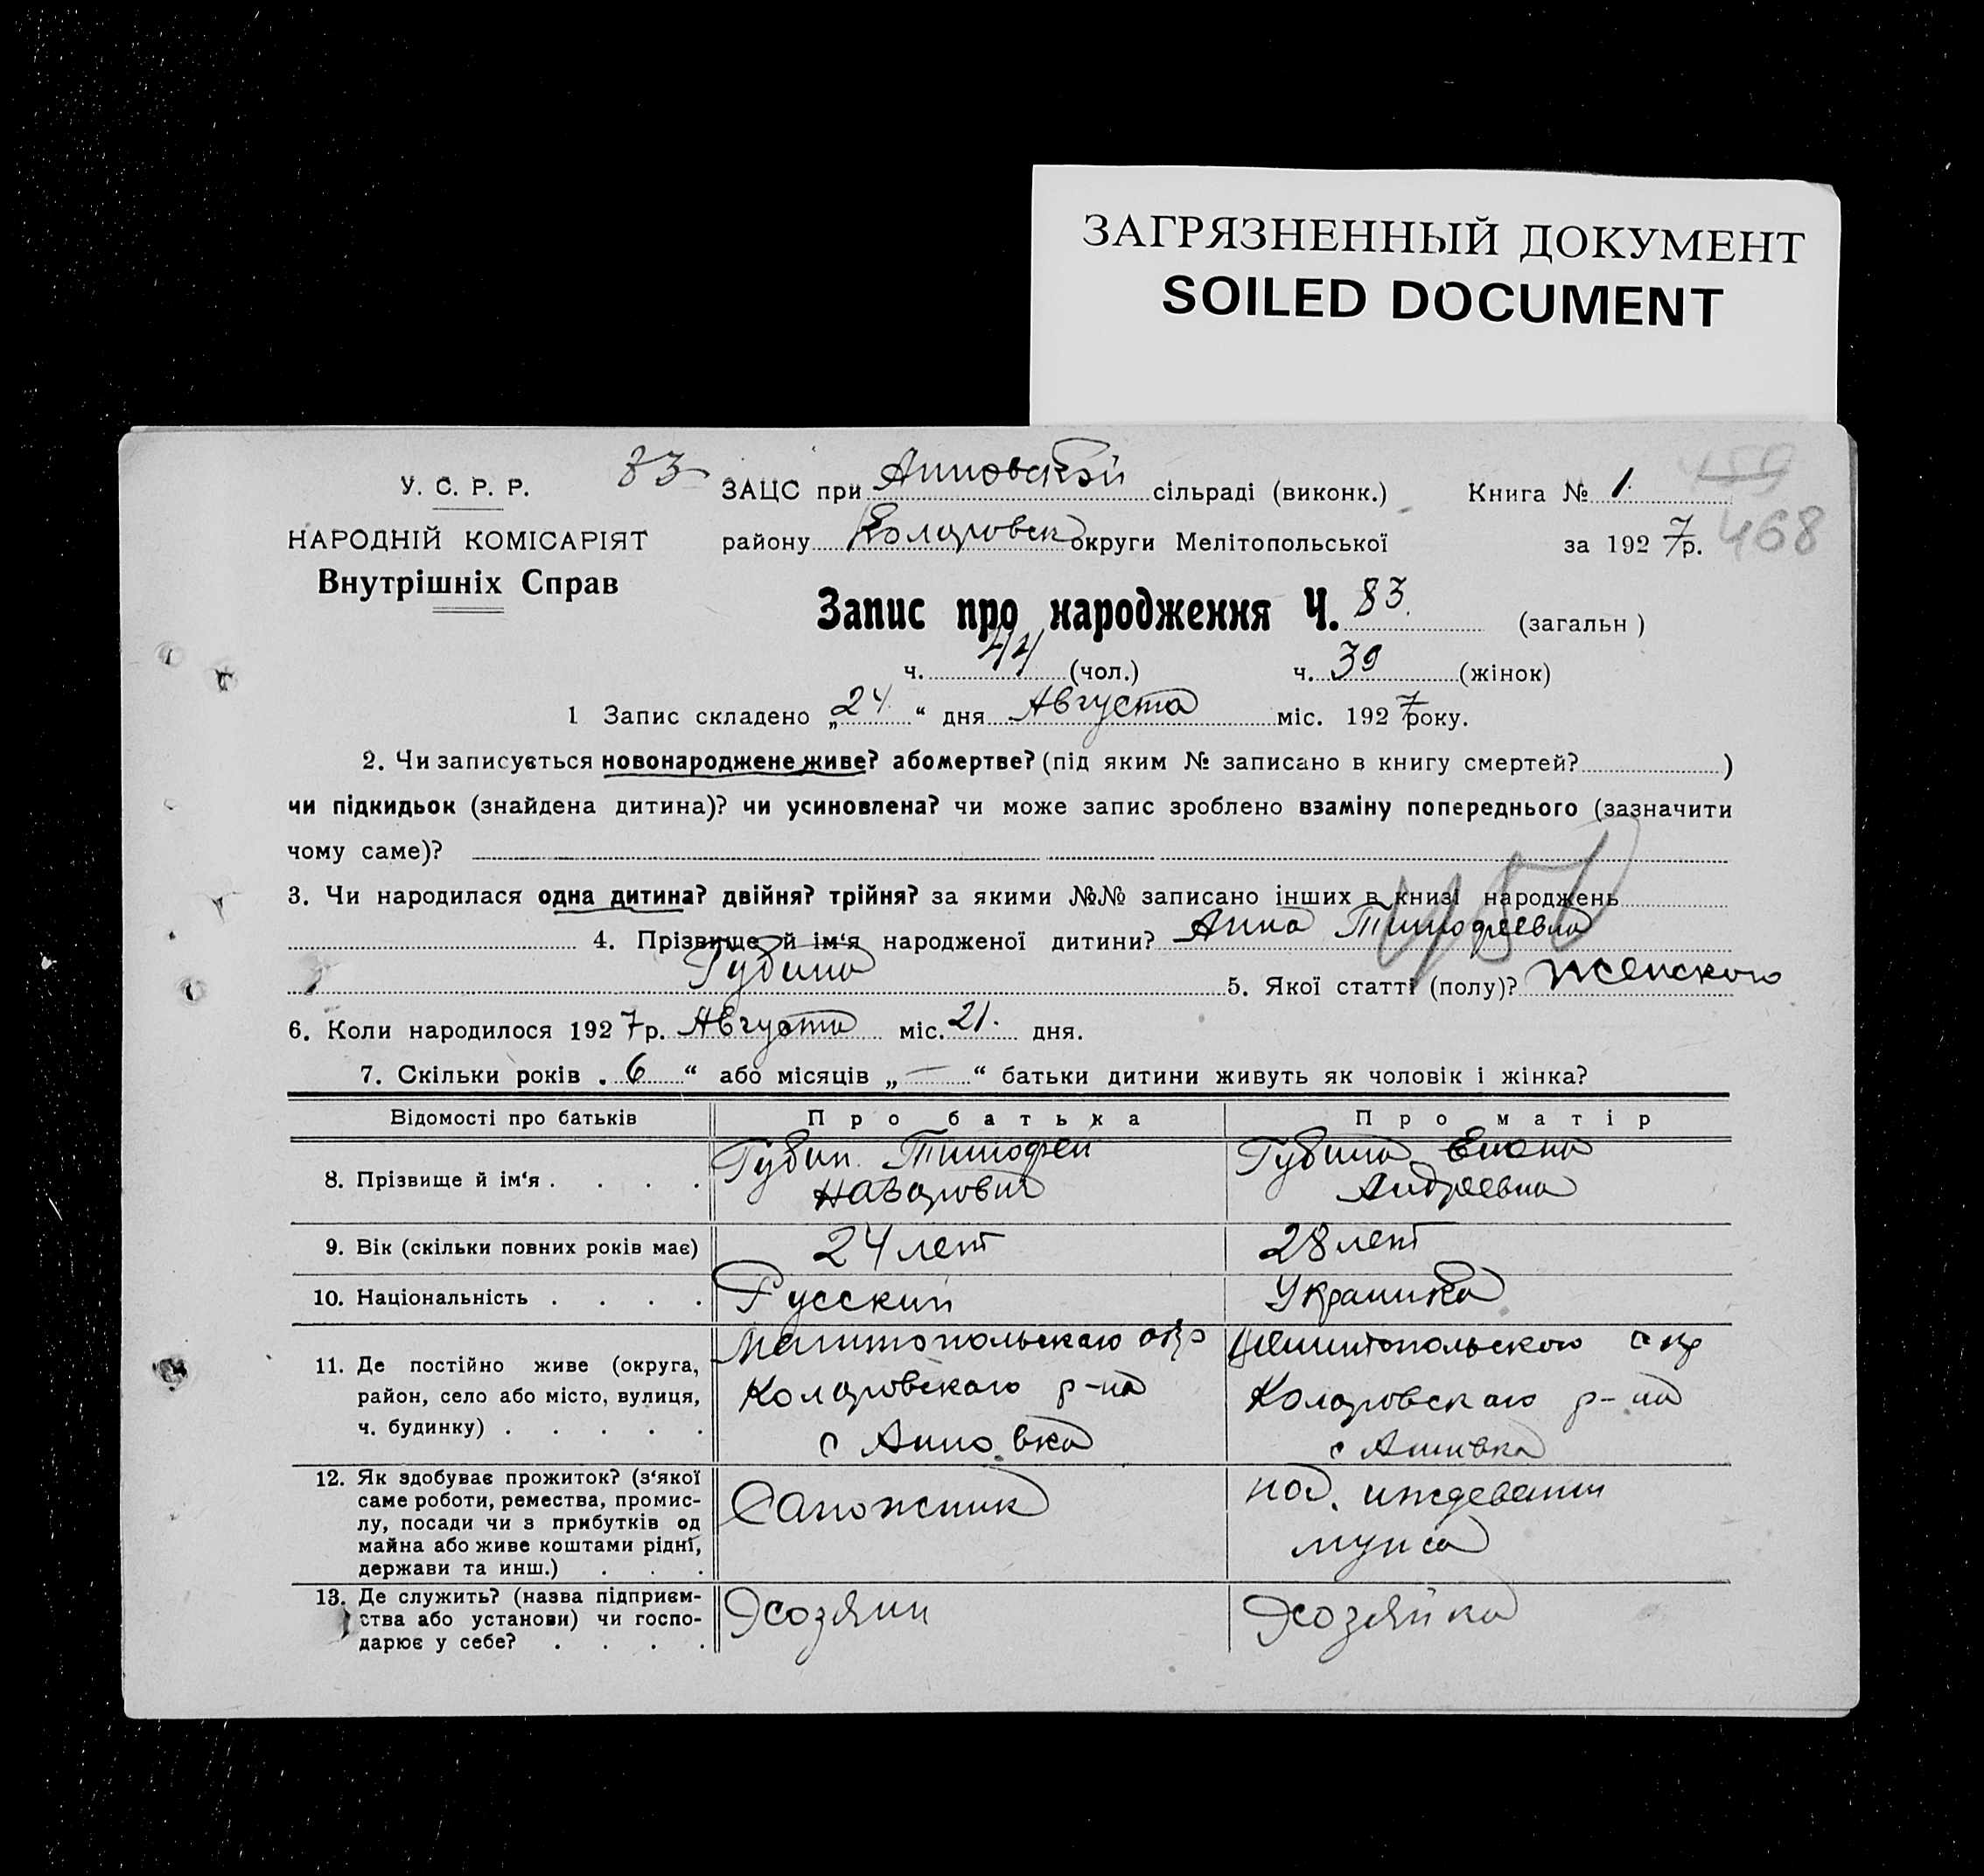 ЗАГРЯЗНЕННЫЙ ДОКУМЕНТ
SOILED DOCUMENT
У. С. Р. Р.
НАРОДНІЙ КОМІСАРІЯТ
Внутрішніх Справ
83 ЗАЦС при Анновской сільраді (виконк.) Книга № 1 459
району Коларовск округи Мелітопольської за 1927 р. 468
Запис про народження Ч. 83. (загальн )
ч. 44 (чол.) ч. 39 (жінок)
1 Запис складено „24“ дня Августа міс. 1927 року.
2. Чи записується новонароджене живе? або мертве? (під яким № записано в книгу смертей? )
чи підкидьок (знайдена дитина)? чи усиновлена? чи може запис зроблено взаміну попереднього (зазначити
чому саме)?
3. Чи народилася одна дитина? двійня? трійня? за якими №№ записано інших в книзі народжень
4. Прізвище й ім‘я народженої дитини? Анна Тимофеевна
Губина 5. Якої статті (полу)? Женского
6. Коли народилося 1927 р. Августа міс. 21. дня.
7. Скільки років „6“ або місяців „—“ батьки дитини живуть як чоловік і жінка?
Відомості про батьків Про батька Про матір
8. Прізвище й ім‘я . . . . Губин Тимофей Губина Елена
Назарович Андреевна
9. Вік (скільки повних років має) 24 лет 28 лет
10. Національність . . . . Русский Украинка
11. Де постійно живе (округа, Мелитопольскаго окр Мелитопольского окр
район, село або місто, вулиця, Коларовскаго р-на Коларовскаго р-на
ч. будинку) . . . . . с Анновка с Анновка
12. Як здобуває прожиток? (з‘якої
саме роботи, ремества, промис- Сапожник на. иждевении
лу, посади чи з прибутків од мужа
майна або живе коштами рідні,
держави та инш.) . . .
13. Де служить? (назва підприєм- Хозяин Хозяйка
ства або установи) чи госпо-
дарює у себе? . . . .